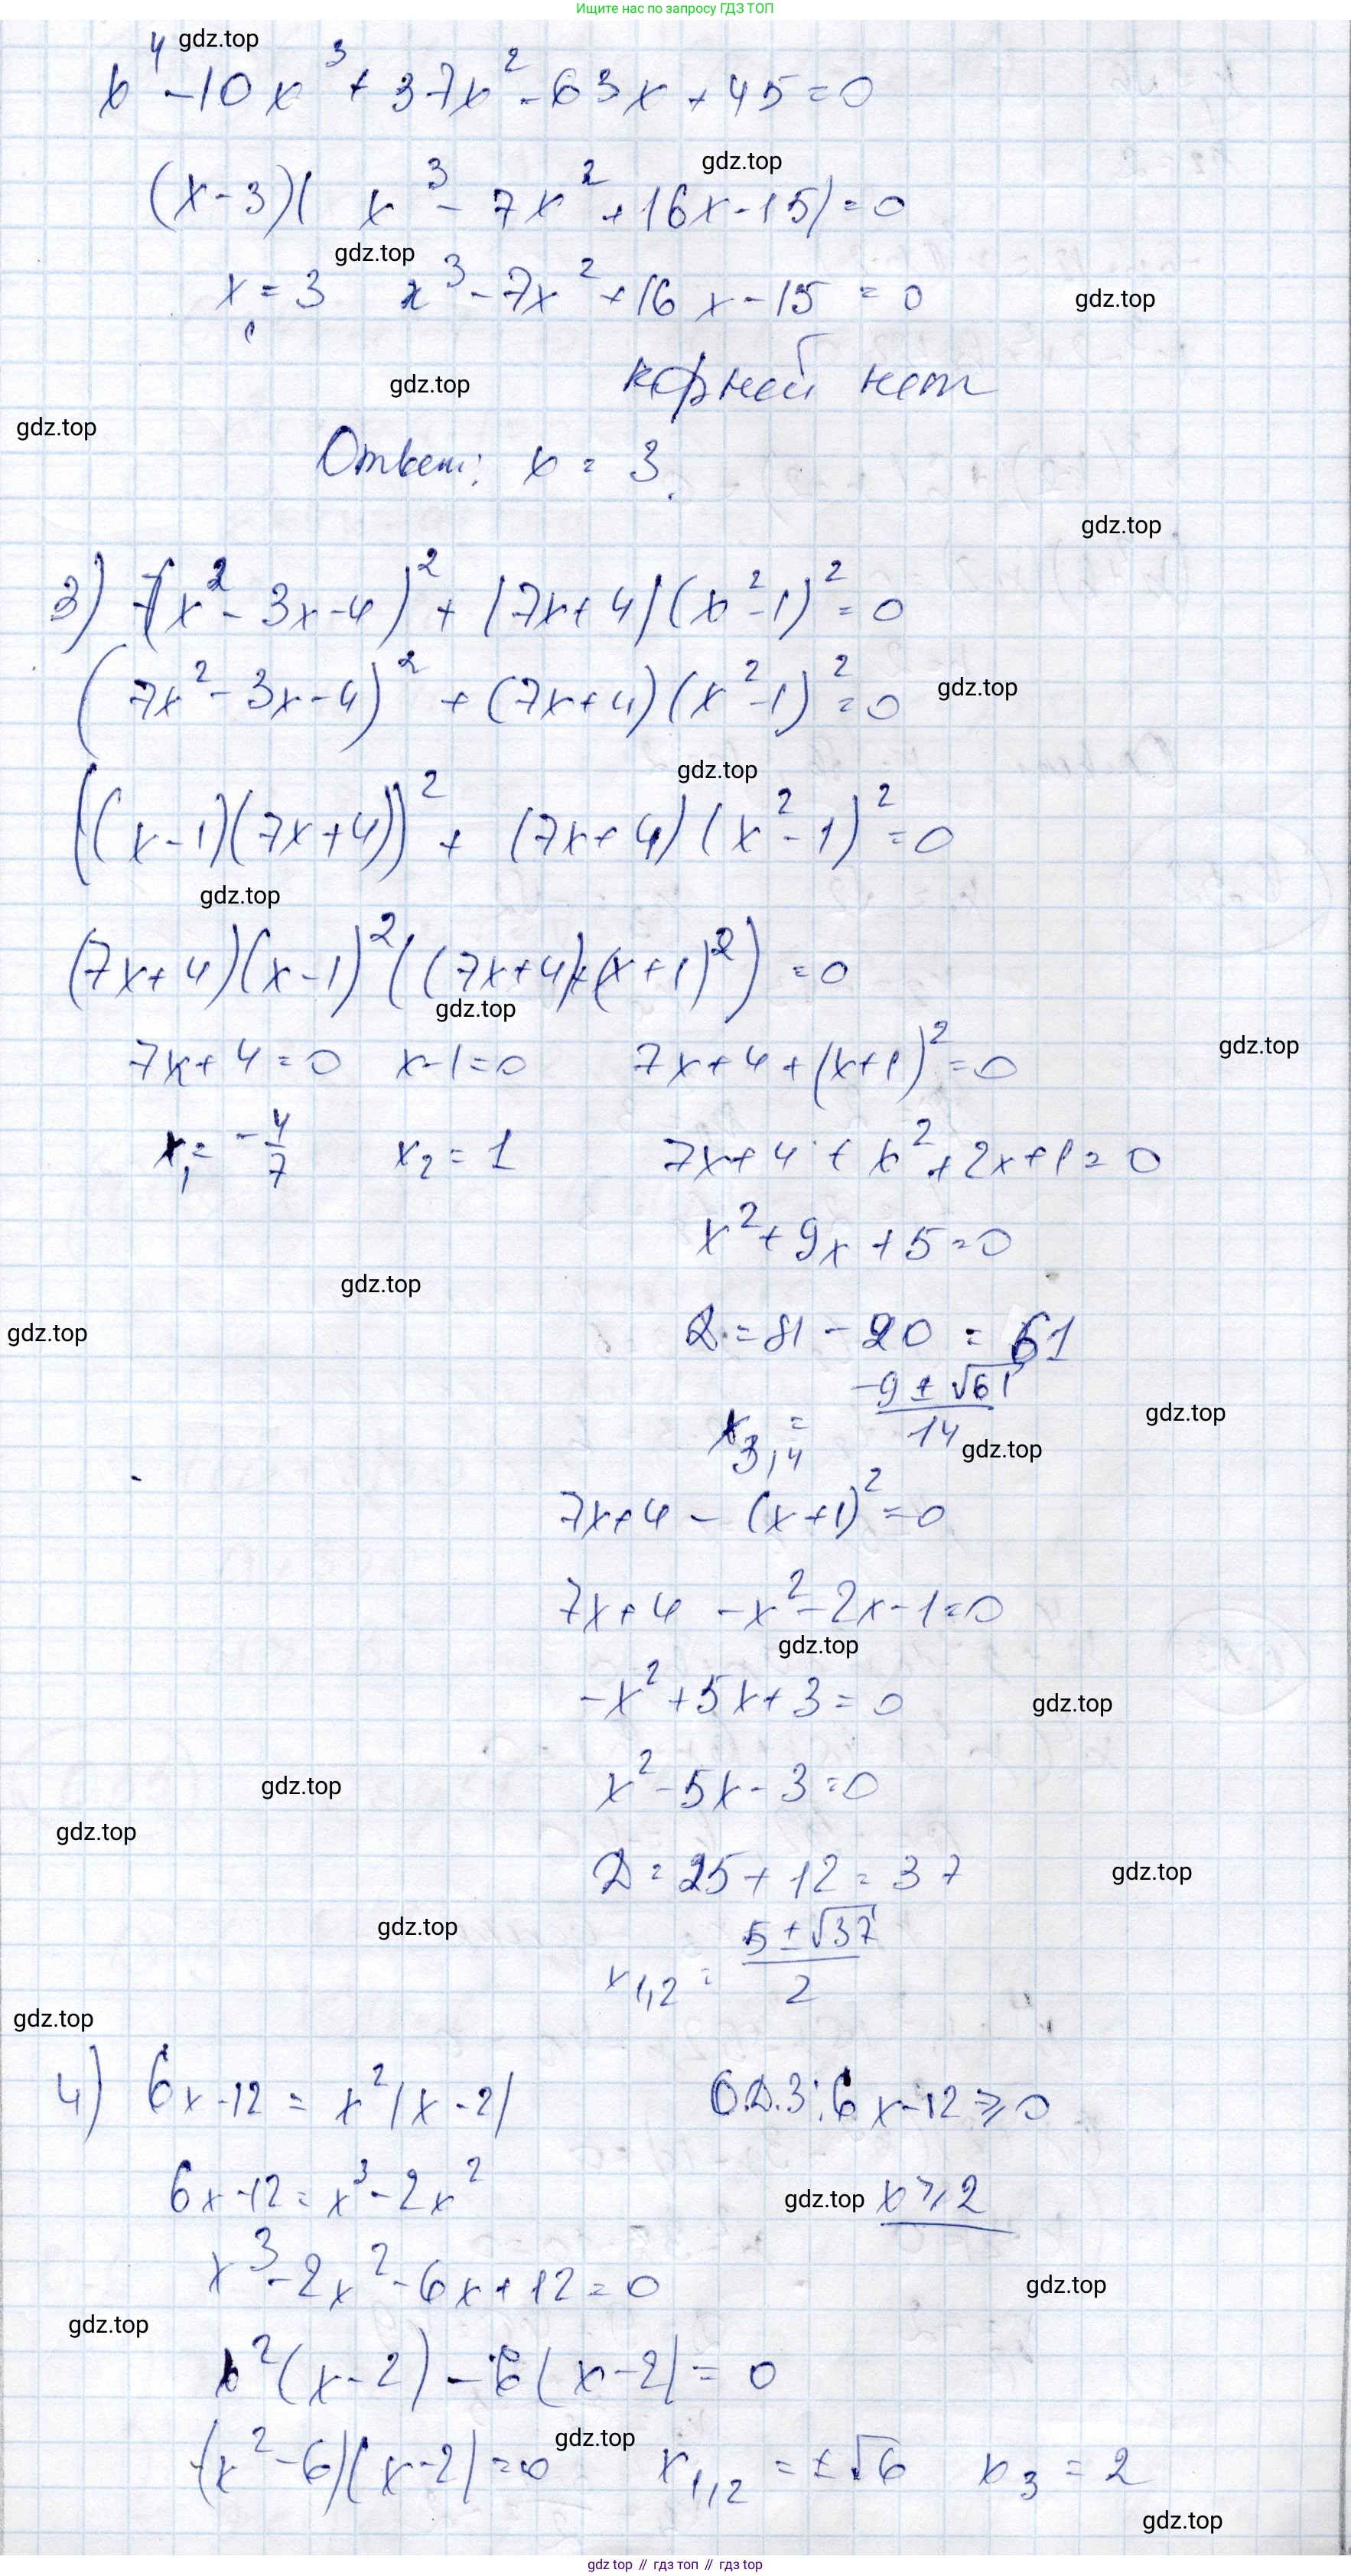 Ищите нас по запросу ГДЗ ТОП
gdz.top
x⁴ - 10x³ + 37x² - 63x + 45 = 0
gdz.top
(x - 3)( x³ - 7x² + 16x - 15) = 0
gdz.top
x₁ = 3 x³ - 7x² + 16x - 15 = 0
gdz.top
корней нет
gdz.top
gdz.top
Ответ: x = 3.
gdz.top
3) 7(x² - 3x - 4)² + (7x + 4)(x² - 1)² = 0
(7x² - 3x - 4)² + (7x + 4)(x² - 1)² = 0
gdz.top
gdz.top
((x - 1)(7x + 4))² + (7x + 4)(x² - 1)² = 0
gdz.top
(7x + 4)(x - 1)²((7x + 4) + (x + 1)²) = 0
gdz.top
7x + 4 = 0 x - 1 = 0 7x + 4 + (x + 1)² = 0
gdz.top
x₁ = -4/7 x₂ = 1 7x + 4 + x² + 2x + 1 = 0
x² + 9x + 5 = 0
gdz.top
gdz.top
D = 81 - 20 = 61
x₃,₄ = (-9 ± √61)/14
gdz.top
gdz.top
7x + 4 - (x + 1)² = 0
7x + 4 - x² - 2x - 1 = 0
gdz.top
-x² + 5x + 3 = 0
gdz.top
x² - 5x - 3 = 0
gdz.top
gdz.top
D = 25 + 12 = 37
gdz.top
gdz.top
x₁,₂ = (5 ± √37)/2
gdz.top
4) 6x - 12 = x²(x - 2) О.Д.З: 6x - 12 ⩾ 0
6x - 12 = x³ - 2x² gdz.top x ⩾ 2
x³ - 2x² - 6x + 12 = 0
gdz.top
gdz.top
x²(x - 2) - 6(x - 2) = 0
gdz.top
(x² - 6)(x - 2) = 0 x₁,₂ = ±√6 x₃ = 2
gdz.top
gdz top // гдз топ // gdz top